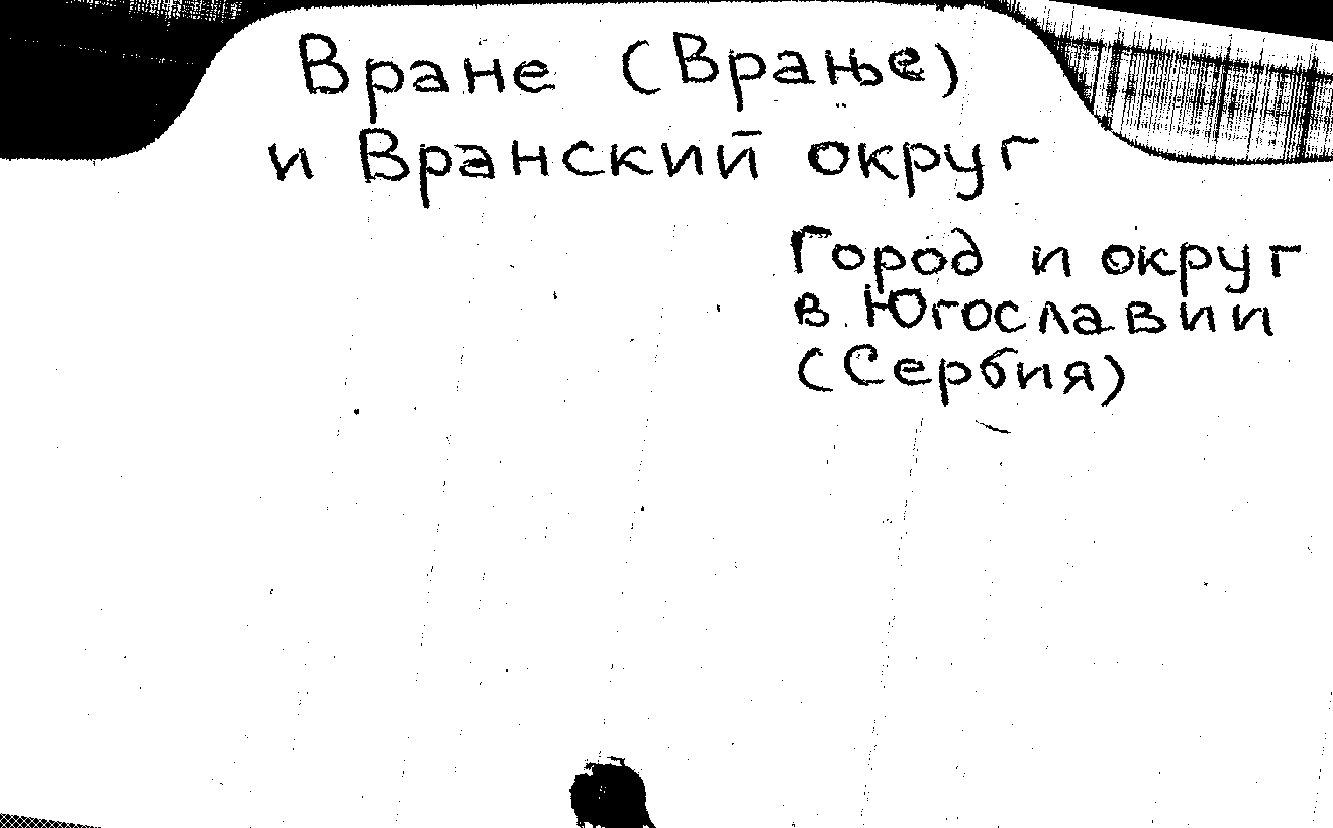 Вране (Врање)
и Вранский округ
Город и округ
в Югославии
(Сербия)